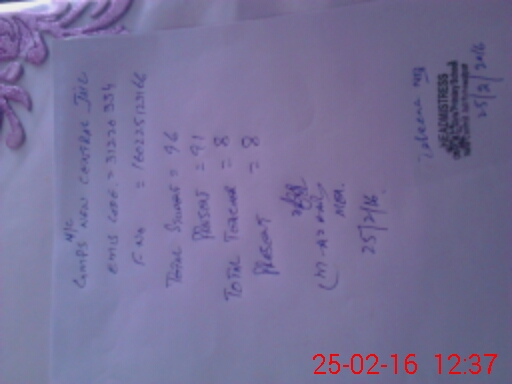 N/C
GMPS NEW CENTRAL JAIL
EMIS CODE = 31220334
F. No = 160225123166
TOTAL STUDENT = 96
PRESENT = 91
TOTAL TEACHER = 8
PRESENT = 8
MEA.
25/2/16.
HEADMISTRESS
25/2/2016
25-02-16 12:37